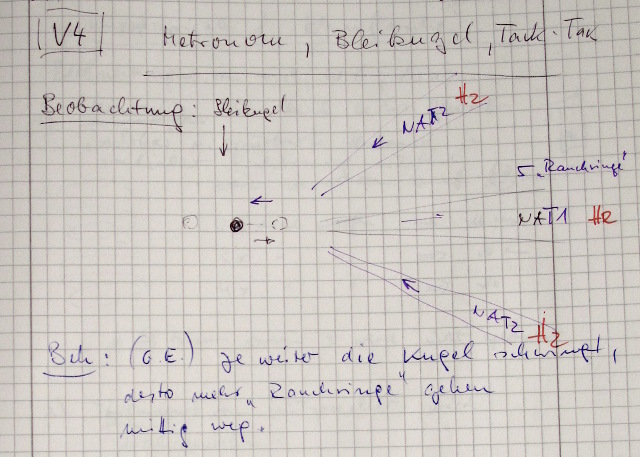 V4 Metronom, Bleikugel, Tack-Tak
Beobachtung: Bleikugel
NAT2 Hz
5 "Rauchringe"
NAT1 Hz
NAT2 Hz
Bch: (G.E.) Je weiter die Kugel schwingt,
desto mehr "Rauchringe" gehen
mittig weg.